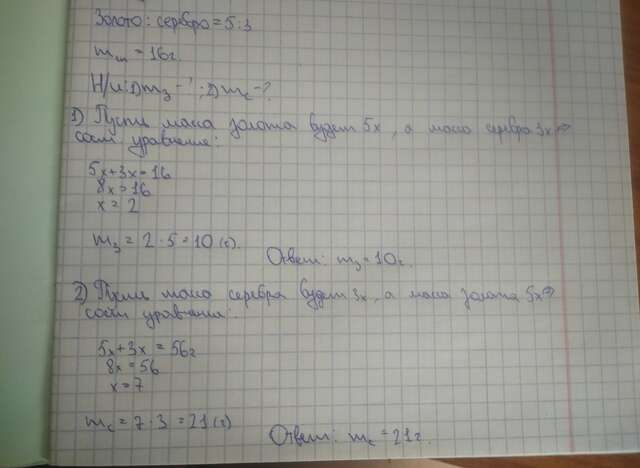 Золото : серебро = 5 : 3
m = 16 г.
Н/и: 1) mз - ? ; 2) mс - ?
1) Пусть маса золота будет 5x, а маса серебра 3x ⇒
сост уравнение:
5x + 3x = 16
8x = 16
x = 2
mз = 2 · 5 = 10 (г).
Ответ: mз = 10 г.
2) Пусть маса серебра будет 3x, а маса золота 5x ⇒
сост уравнение:
5x + 3x = 56г
8x = 56
x = 7
mс = 7 · 3 = 21 (г)
Ответ: mс = 21 г.